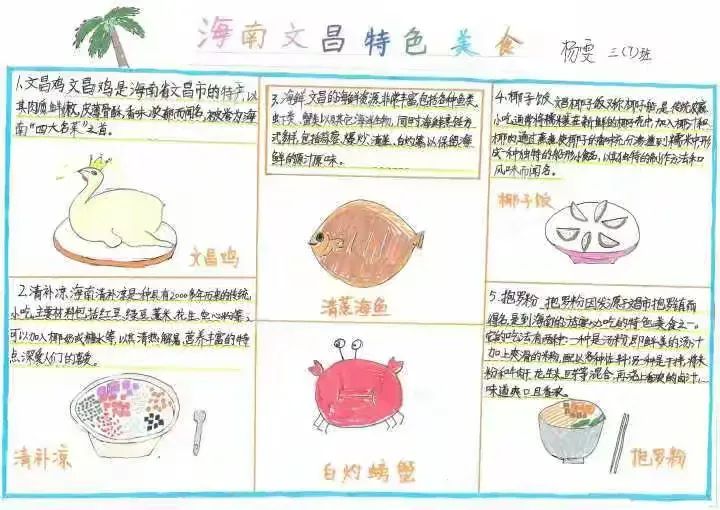 海南文昌特色美食 杨雯 三(7)班
1.文昌鸡 文昌鸡是海南省文昌市的特产,以
其肉质鲜嫩,皮薄骨酥,香味浓郁而闻名,被誉为海
南“四大名菜”之首。
文昌鸡
2.清补凉,海南清补凉是一种具有2000多年历史的传统
小吃,主要材料包括红豆,绿豆,薏米,花生,空心粉等;
可以加入椰奶或糖水等,以其清热解暑,营养丰富的特
点深受人们的喜爱。
清补凉
3.海鲜,文昌的海鲜资源非常丰富,包括各种鱼类,
虾类,蟹类以及其它海洋生物,同时海鲜烹饪方
式多样,包括蒜蓉,爆炒,清蒸,白灼等以保留海
鲜的原汁原味。
清蒸海鱼
白灼螃蟹
4.椰子饭,文昌椰子饭又称椰子船,是传统
小吃,通常将糯米在新鲜的椰子壳中,加入椰汁和
椰肉通过蒸煮使椰子的香味充分渗透到糯米中形
成一种独特的船形小食,以其独特的制作方法和口
风味而闻名。
椰子饭
5.抱罗粉,抱罗粉因发源于文昌市抱罗镇而
得名,是到海南的游客必吃的特色美食之一。
它的吃法有两种:一种是汤粉,即鲜美的汤汁
加上爽滑的米粉,配以多种佐料;另一种是干拌,将米
粉和牛肉干,花生,豆芽等混合,再浇上香浓的卤汁,
味道爽口且香浓。
抱罗粉